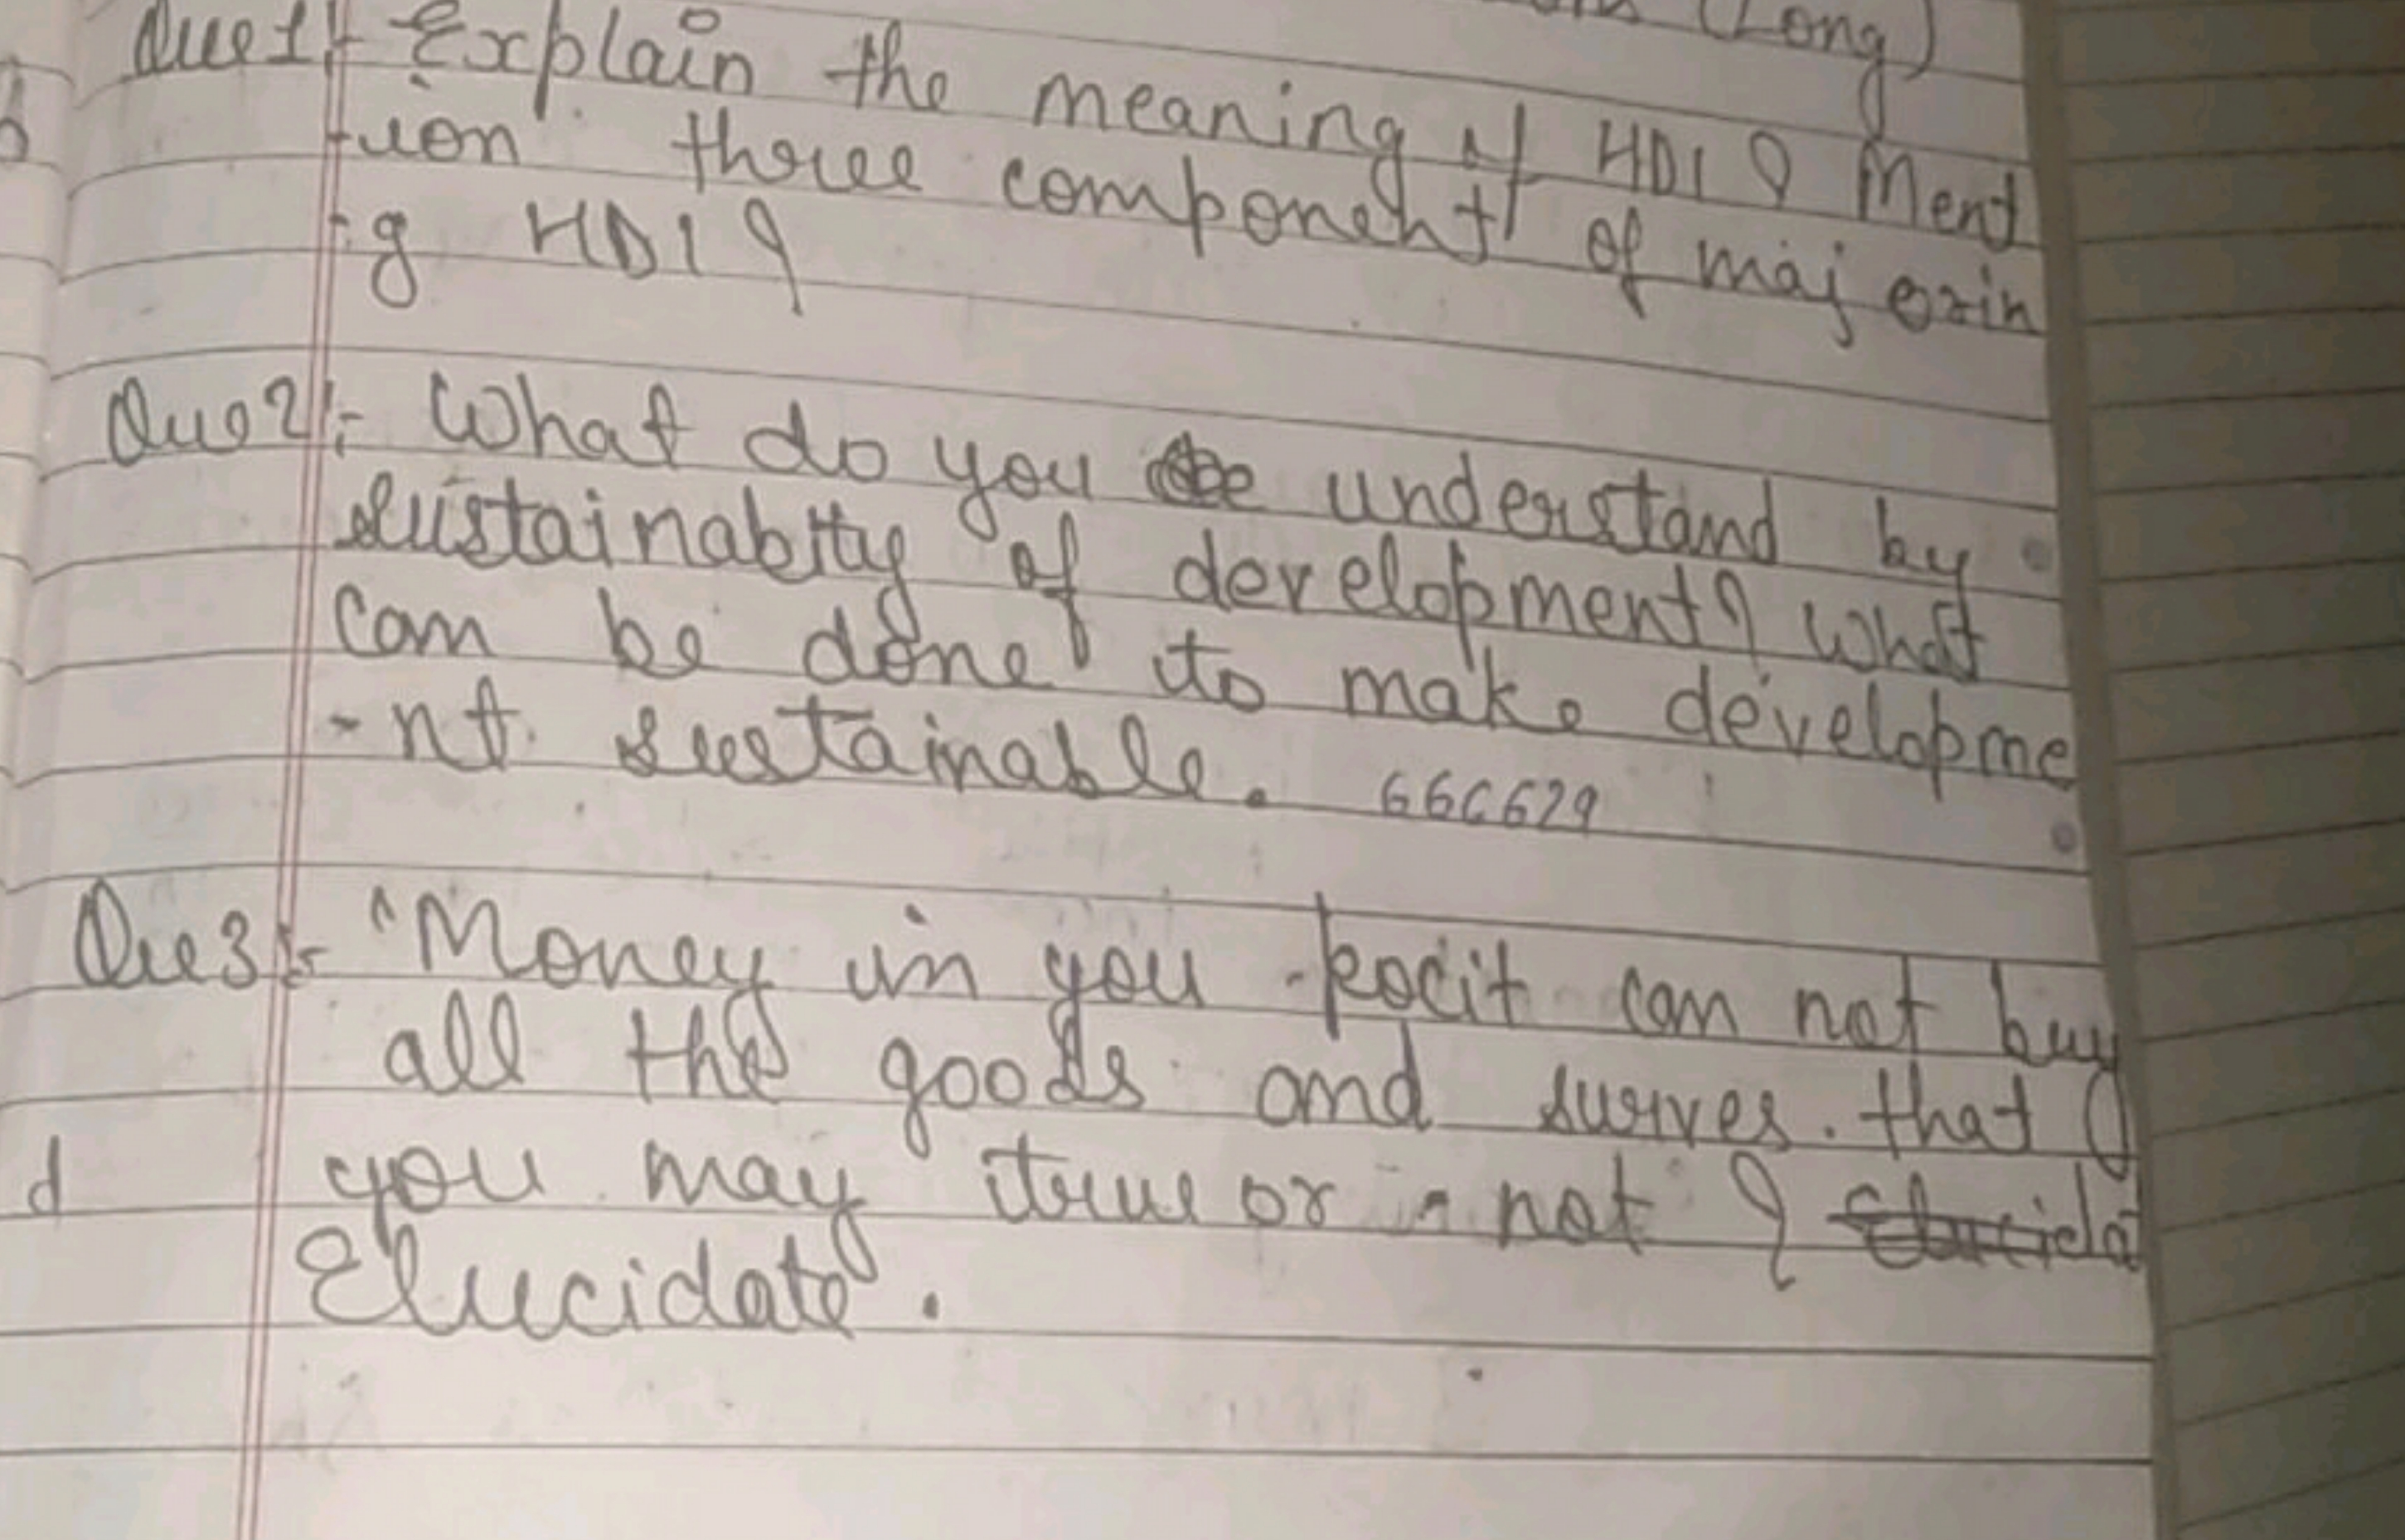 (Long)
Que1:- Explain the meaning of HDI ? Ment
-ion three component of maj erin
-g HDI ?
Que2:- What do you understand by
sustainabtty of development? what
can be done to make developme
-nt sustainable. 666629
Que3:- "Money in you pocit can not buy
all the goods and surves. that
you may true or not ? Elucidat
Elucidate.
d